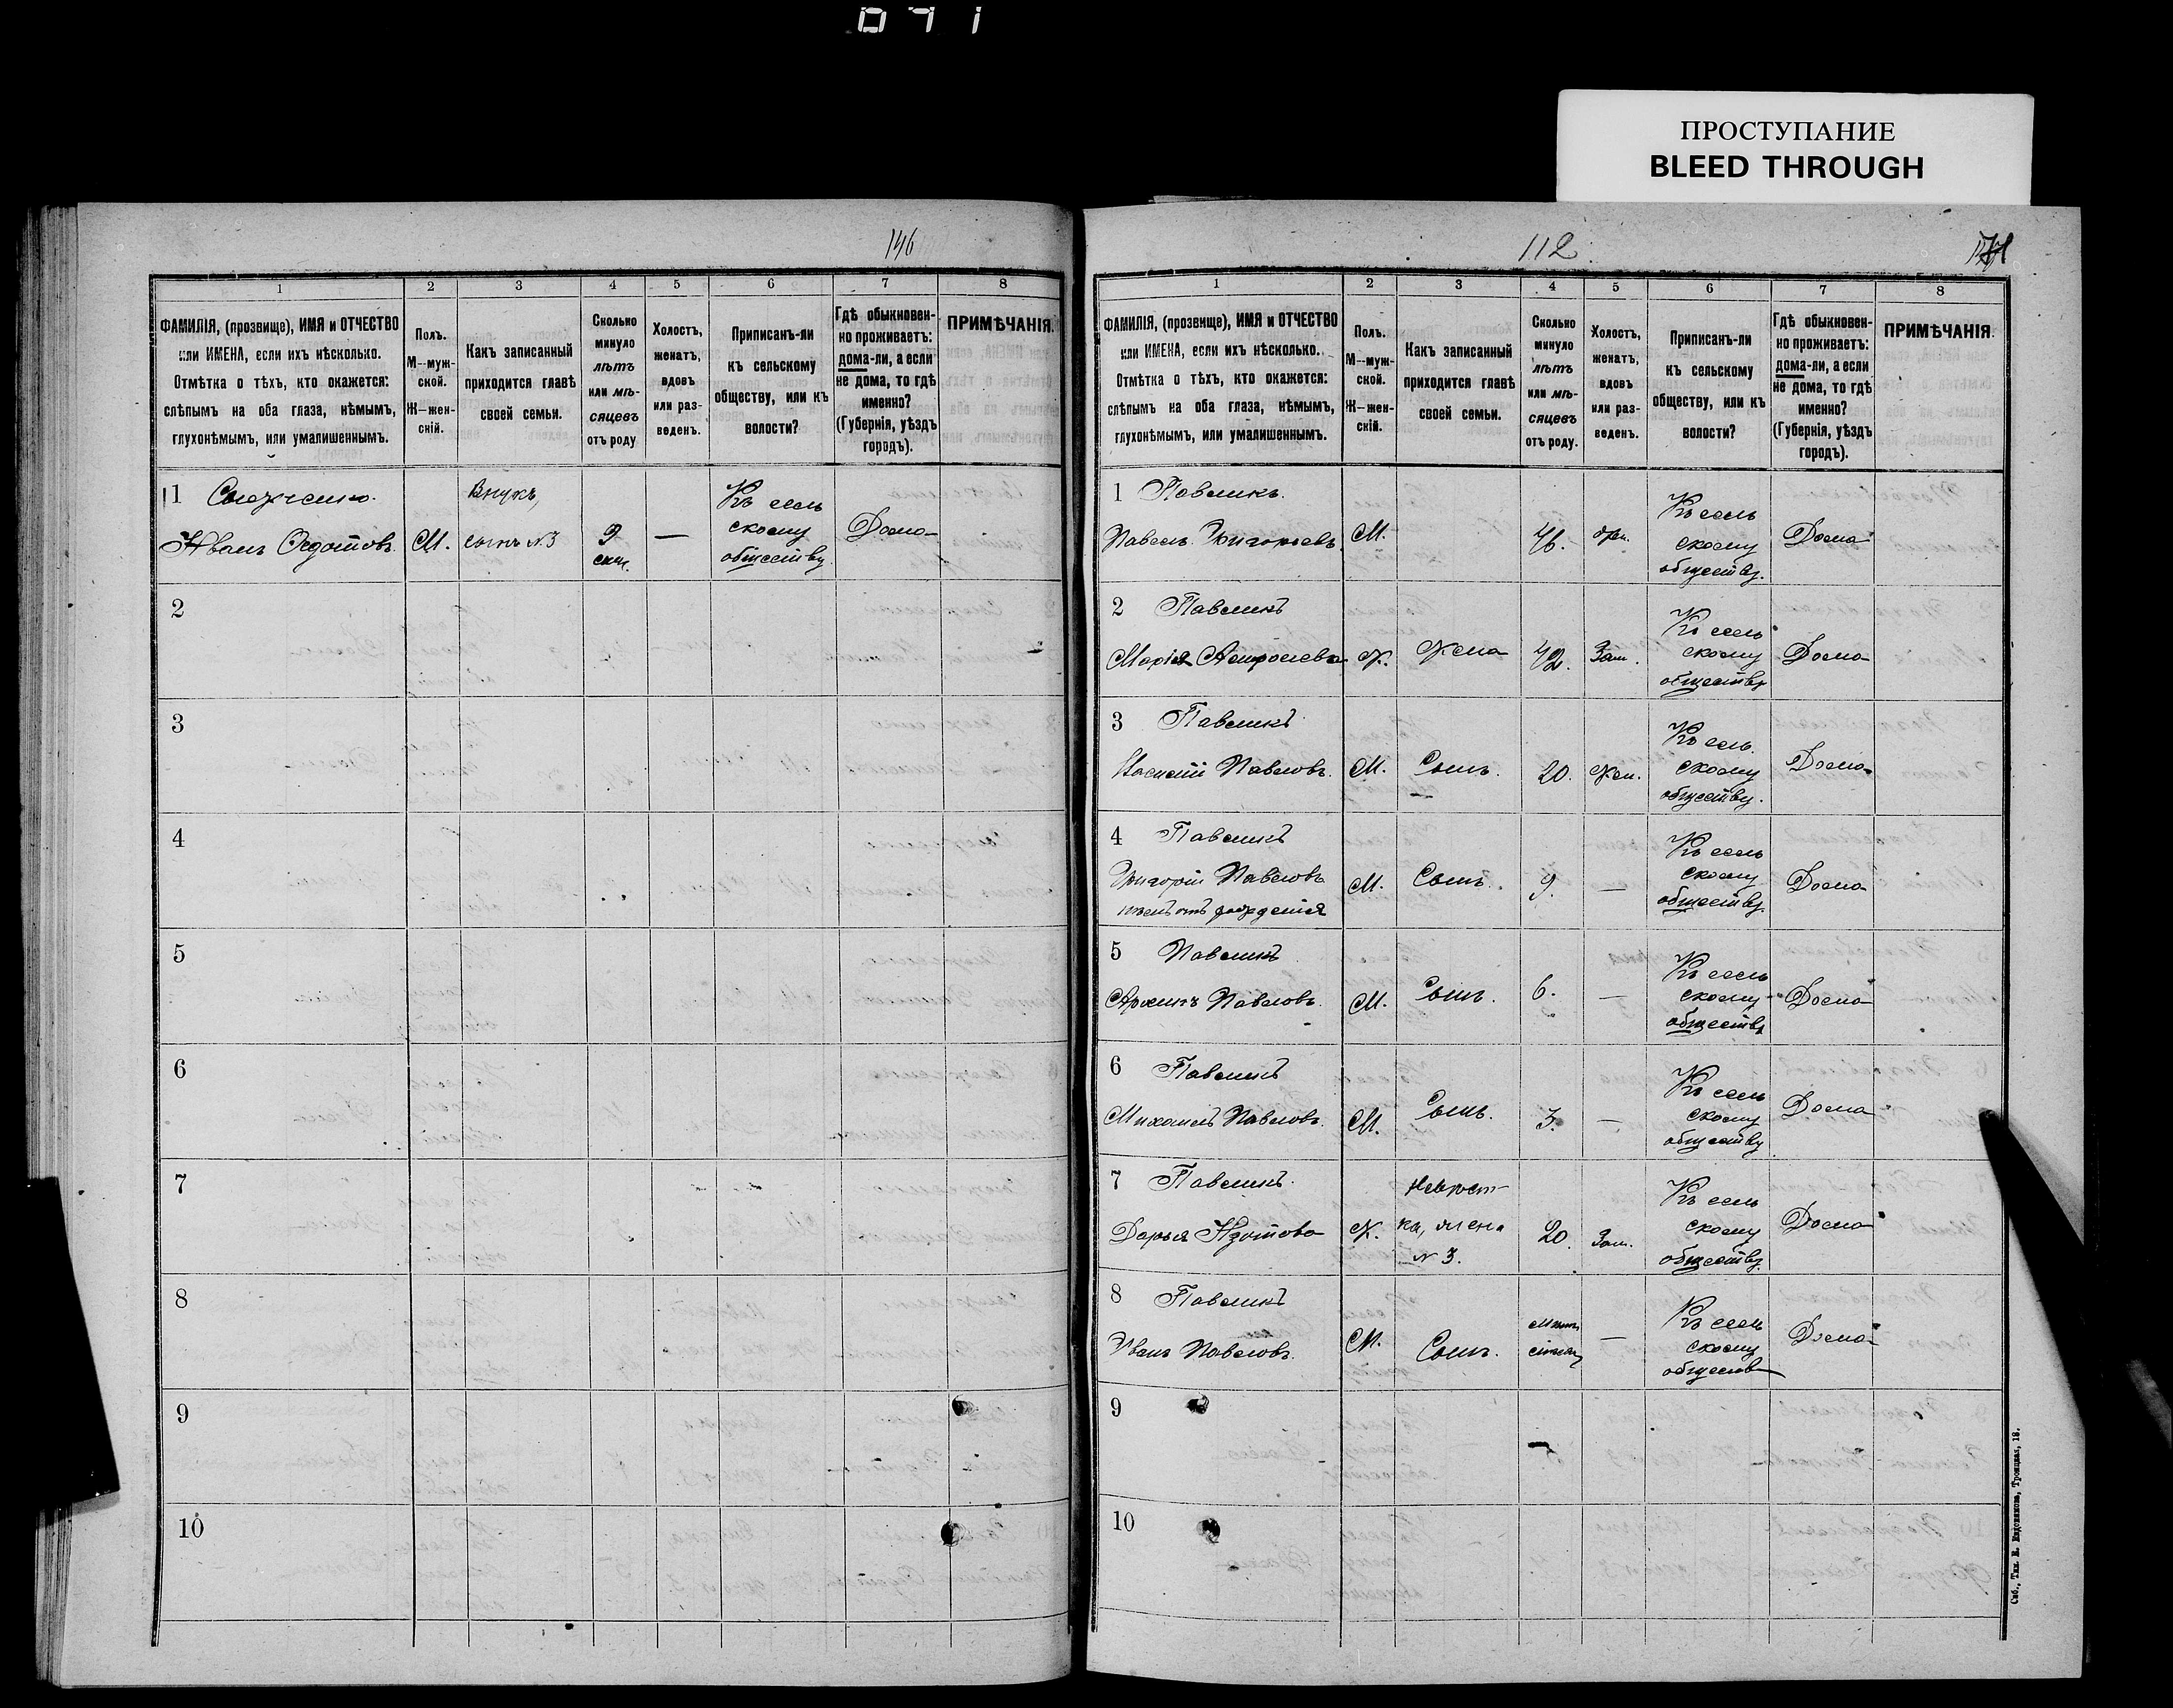 071
ПРОСТУПАНИЕ
BLEED THROUGH
146
1 2 3 4 5 6 7 8
ФАМИЛІЯ, (прозвище), ИМЯ и ОТЧЕСТВО
или ИМЕНА, если ихъ нѣсколько.
Отмѣтка о тѣхъ, кто окажется:
слѣпымъ на оба глаза, нѣмымъ,
глухонѣмымъ, или умалишеннымъ.
Полъ.
М—муж-
ской.
Ж—жен-
скій.
Какъ записанный
приходится главѣ
своей семьи.
Сколько
минуло
лѣтъ
или мѣ-
сяцевъ
отъ роду
Холостъ,
женатъ,
вдовъ
или раз-
веденъ.
Приписанъ-ли
къ сельскому
обществу, или къ
волости?
Гдѣ обыкновен-
но проживаетъ:
дома-ли, а если
не дома, то гдѣ
именно?
(Губернія, уѣздъ
городъ).
ПРИМѢЧАНІЯ.
1
Иванъ Федотовъ.
М.
Внукъ,
сынъ №3
—
Къ сель
скому
обществу.
Дома
2
3
4
5
6
7
8
9
10
112.
1 2 3 4 5 6 7 8
ФАМИЛІЯ, (прозвище), ИМЯ и ОТЧЕСТВО
или ИМЕНА, если ихъ нѣсколько.
Отмѣтка о тѣхъ, кто окажется:
слѣпымъ на оба глаза, нѣмымъ,
глухонѣмымъ, или умалишеннымъ.
Полъ.
М—муж-
ской.
Ж—жен-
скій.
Какъ записанный
приходится главѣ
своей семьи.
Сколько
минуло
лѣтъ
или мѣ-
сяцевъ
отъ роду.
Холостъ,
женатъ,
вдовъ
или раз-
веденъ.
Приписанъ-ли
къ сельскому
обществу, или къ
волости?
Гдѣ обыкновен-
но проживаетъ:
дома-ли, а если
не дома, то гдѣ
именно?
(Губернія, уѣздъ
городъ).
ПРИМѢЧАНІЯ.
1 Павликъ.
Павелъ Григорьевъ.
М.
46.
Жен.
Къ сель
скому
обществу.
Дома
2 Павликъ
Марія
Ж.
Жена
42.
Зам.
Къ сель
скому
обществу
Дома
3 Павликъ
Василій Павловъ.
М.
Сынъ.
20.
Жен.
Къ сель
скому
обществу.
Дома
4 Павликъ
Григорій Павловъ
нѣмъ отъ рожденія
М.
Сынъ.
9.
—
Къ сель
скому
обществу.
Дома
5 Павликъ
Архипъ Павловъ.
М.
Сынъ.
6.
—
Къ сель
скому
обществу
Дома
6 Павликъ
Михаилъ Павловъ.
М.
Сынъ.
3.
—
Къ сель
скому
обществу
Дома
7 Павликъ.
Дарья Изотова
Ж.
Невѣст-
ка, жена
№ 3.
20.
Зам.
Къ сель
скому
обществу.
Дома
8 Павликъ
Иванъ Павловъ.
М.
Сынъ.
—
Къ сель
скому
обществ
Дома
9
10
Спб., Тип. Е. Евдокимова, Троицкая, 18.